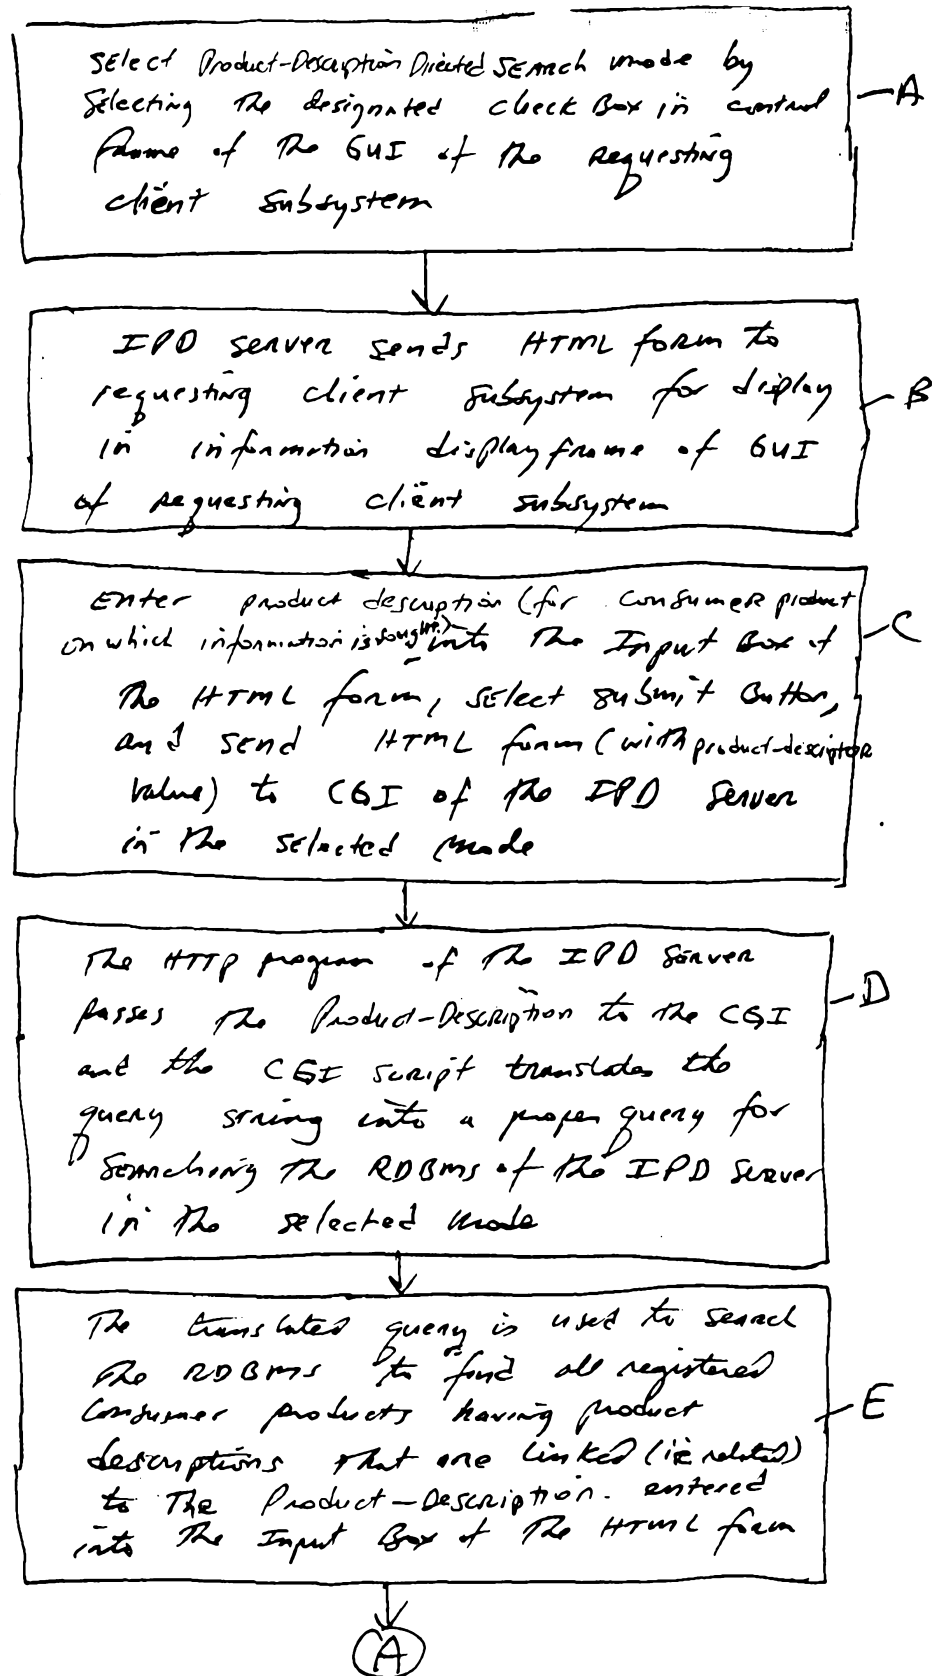 Select Product-Description Directed SEARCH mode by
Selecting The designated check Box in control
frame of The GUI of the requesting
client subsystem
A
IPD server sends HTML form to
requesting client subsystem for display
in information display frame of GUI
of requesting client subsystem
B
Enter product description (for consumer product
on which information is sought) into The Input Box of
The HTML form, select submit Button,
and send HTML form (with product-descriptor
value) to CGI of the IPD Server
in The selected mode
C
The HTTP program of The IPD Server
passes The Product-Description to the CGI
and the CGI script translates the
query string into a proper query for
searching The RDBMS of the IPD Server
in The selected mode
D
The translated query is used to search
The RDBMS to find all registered
consumer products having product
descriptions that are linked (ie related)
to The Product-Description. entered
into The Input Box of The HTML form
E
A